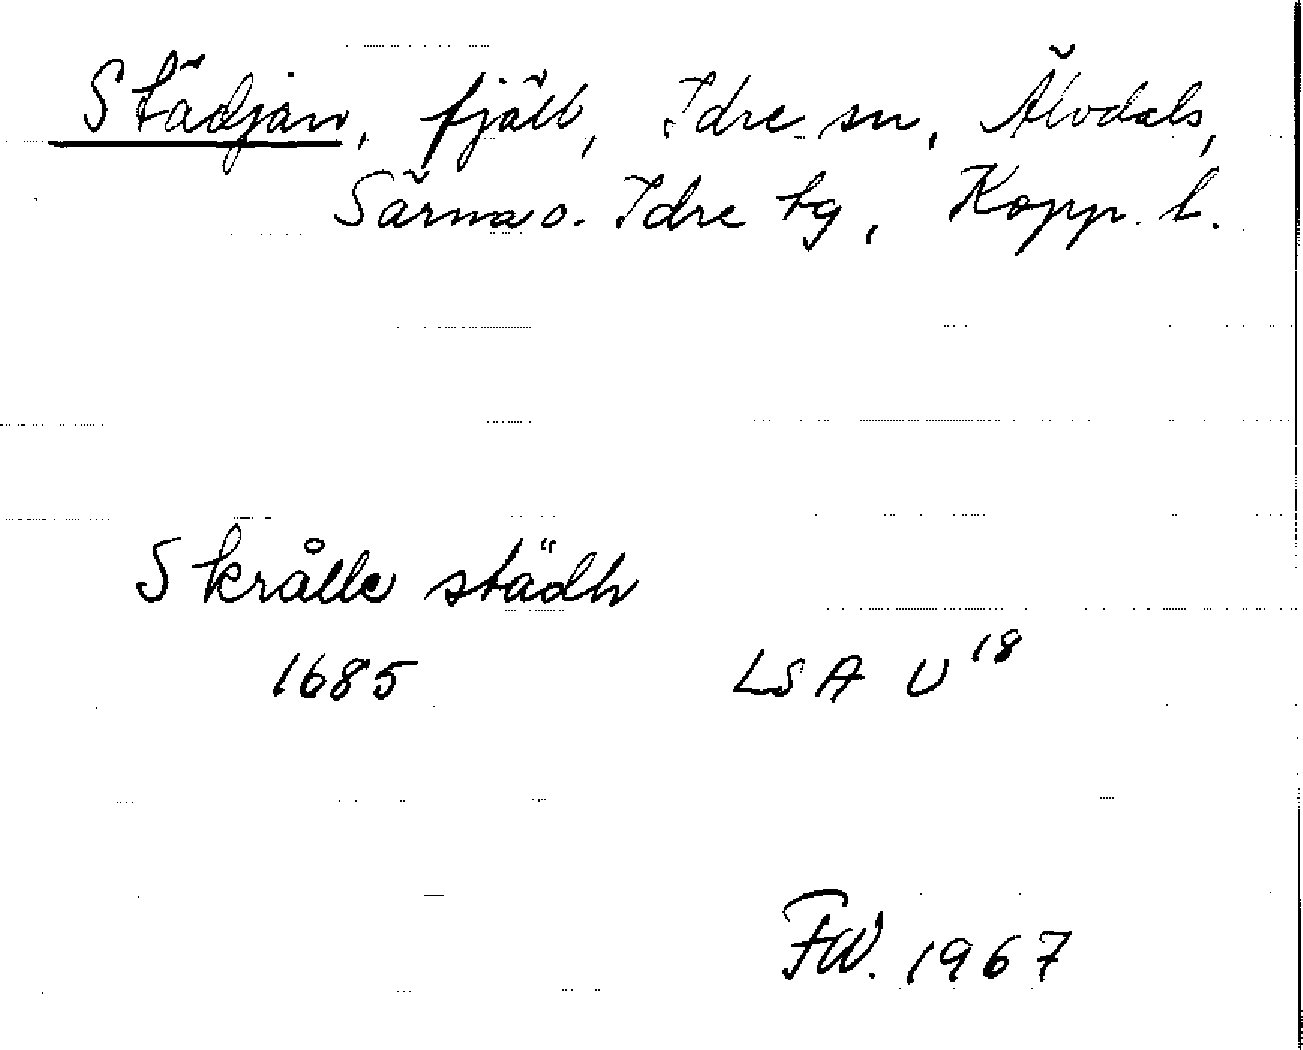 Städjan, fjäll, Idre sn, Älvdals,
Särna o. Idre tg, Kopp. l.
Skrålle städh
1685 LSA U18
FW. 1967